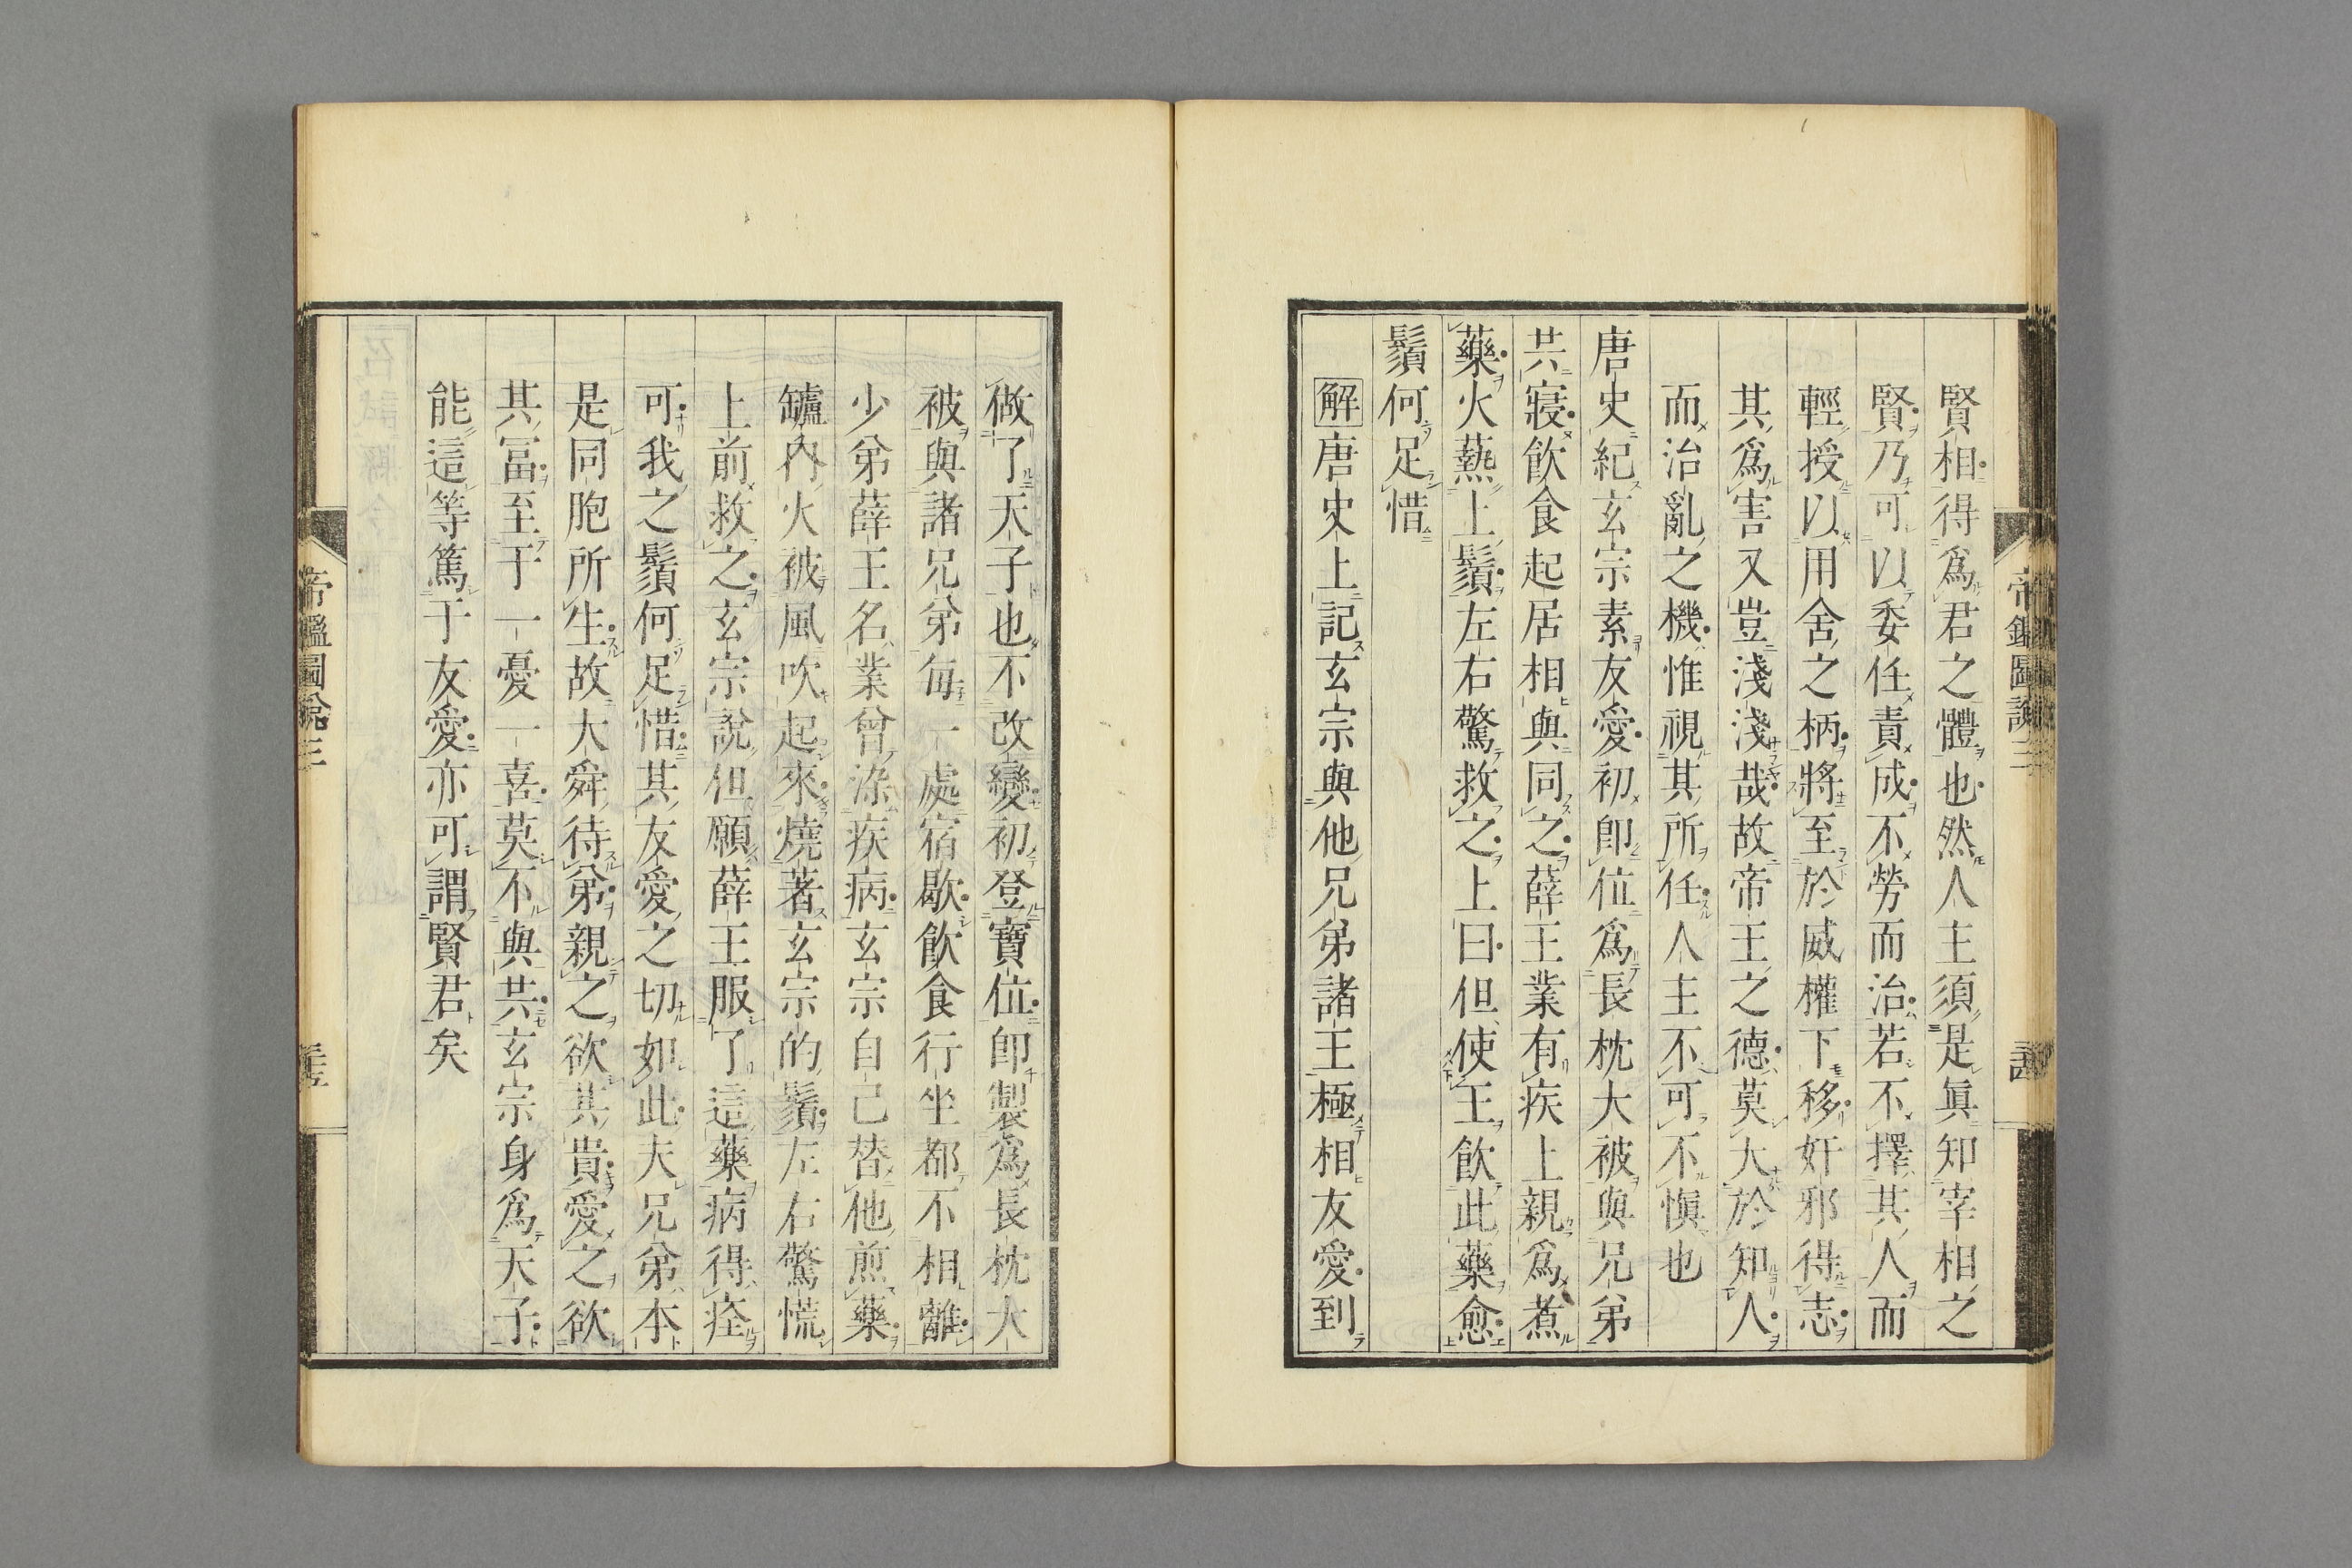 賢相得爲君之體也然人主須是眞知宰相之
賢乃可以委任責成不勞而治若不擇其人而
輕授以用舍之柄將至於威權下移奸邪得志
其爲害又豈淺淺哉故帝王之德莫大於知人
而治亂之機惟視其所任人主不可不愼也
唐史紀玄宗素友愛初卽位爲長枕大被與兄弟
共寢飲食起居相與同之薛王業有疾上親爲煮
藥火爇上鬚左右驚救之上曰但使王飲此藥愈
鬚何足惜
解唐史上記玄宗與他兄弟諸王極相友愛到
做了天子也不改變初登寶位卽製爲長枕大
被與諸兄弟每一處宿歇飲食行坐都不相離
少弟薛王名業曾染疾病玄宗自己替他煎藥
罏內火被風吹起來燒著玄宗的鬚左右驚慌
上前救之玄宗說但願薛王服了這藥病得痊
可我之鬚何足惜其友愛之切如此夫兄弟本
是同胞所生故大舜待弟親之欲其貴愛之欲
其富至于一憂一喜莫不與共玄宗身爲天子
能這等篤于友愛亦可謂賢君矣
帝鑑圖說三